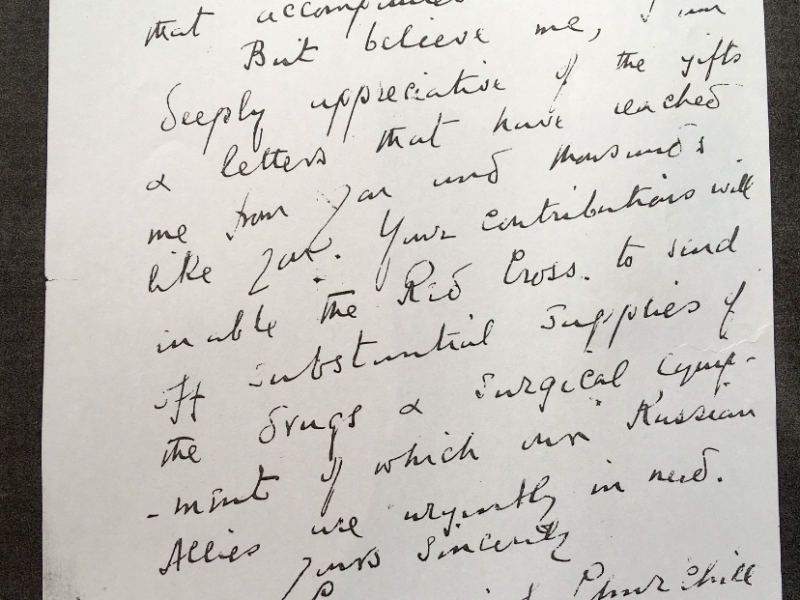 that accompanied
But believe me, I am
deeply appreciative of the gifts
& letters that have reached
me from you and thousands
like you. Your contributions will
enable the Red Cross. to send
off substantial supplies of
the drugs & surgical equip-
-ment of which our Russian
Allies are urgently in need.
Yours sincerely
Churchill